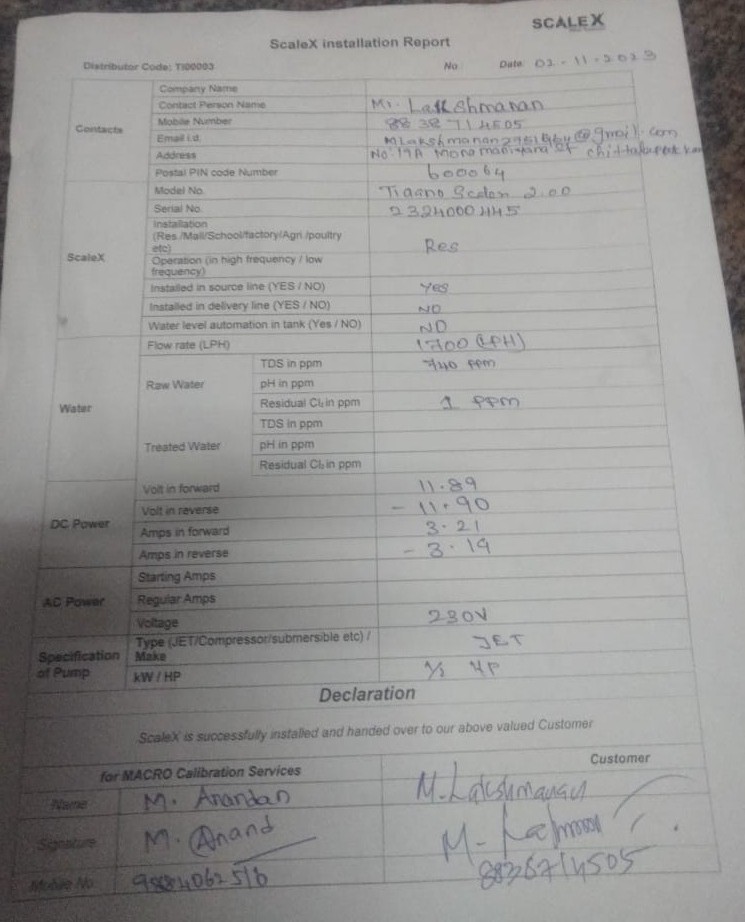 SCALEX
ScaleX installation Report
Distributor Code: TI00003 No Date 02-11-2023
Contacts
Company Name
Contact Person Name Mr. Lakshmanan
Mobile Number
Email i.d. @gmail.com
Address No: 19A
Postal PIN code Number 600064
ScaleX
Model No. 2.00
Serial No. 2324000445
Installation
(Res./Mall/School/factory/Agri./poultry
etc) Res
Operation (in high frequency / low
frequency)
Installed in source line (YES / NO) YES
Installed in delivery line (YES / NO) NO
Water level automation in tank (Yes / NO) NO
Flow rate (LPH) 1700 (LPH)
Water
Raw Water
TDS in ppm 740 ppm
pH in ppm
Residual Cl₂ in ppm 1 ppm
Treated Water
TDS in ppm
pH in ppm
Residual Cl₂ in ppm
DC Power
Volt in forward 11.89
Volt in reverse - 11.90
Amps in forward 3.21
Amps in reverse - 3.19
AC Power
Starting Amps
Regular Amps
Voltage 230V
Specification
of Pump
Type (JET/Compressor/submersible etc) /
Make JET
kW / HP ½ HP
Declaration
ScaleX is successfully installed and handed over to our above valued Customer
for MACRO Calibration Services Customer
Name M. Anandan M. Lakshmanan
Signature M. Anand
Mobile No 9884062516